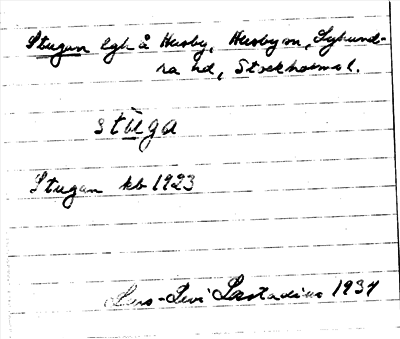 Stugan lgh å Husby, Husby sn, Lyhund-
ra hd, Stockholms l.
stùga
Stugan kb 1923
Lars-Levi Læstadius 1934